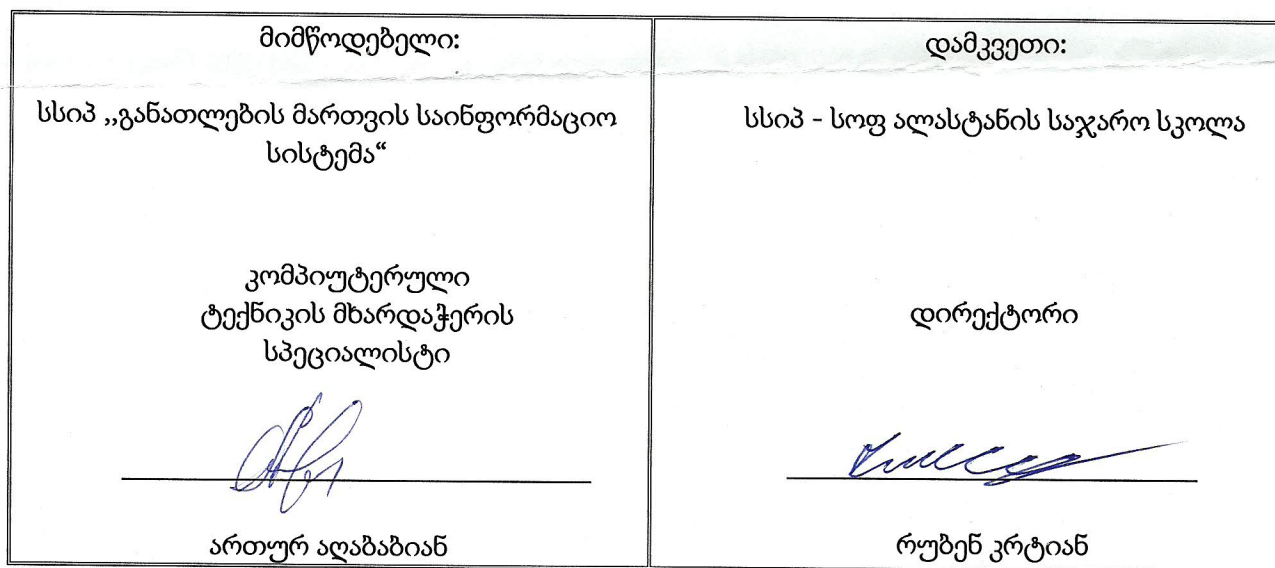 მიმწოდებელი:
სსიპ ,,განათლების მართვის საინფორმაციო
სისტემა“
კომპიუტერული
ტექნიკის მხარდაჭერის
სპეციალისტი
ართურ აღაბაბიან
დამკვეთი:
სსიპ - სოფ ალასტანის საჯარო სკოლა
დირექტორი
რუბენ კრტიან